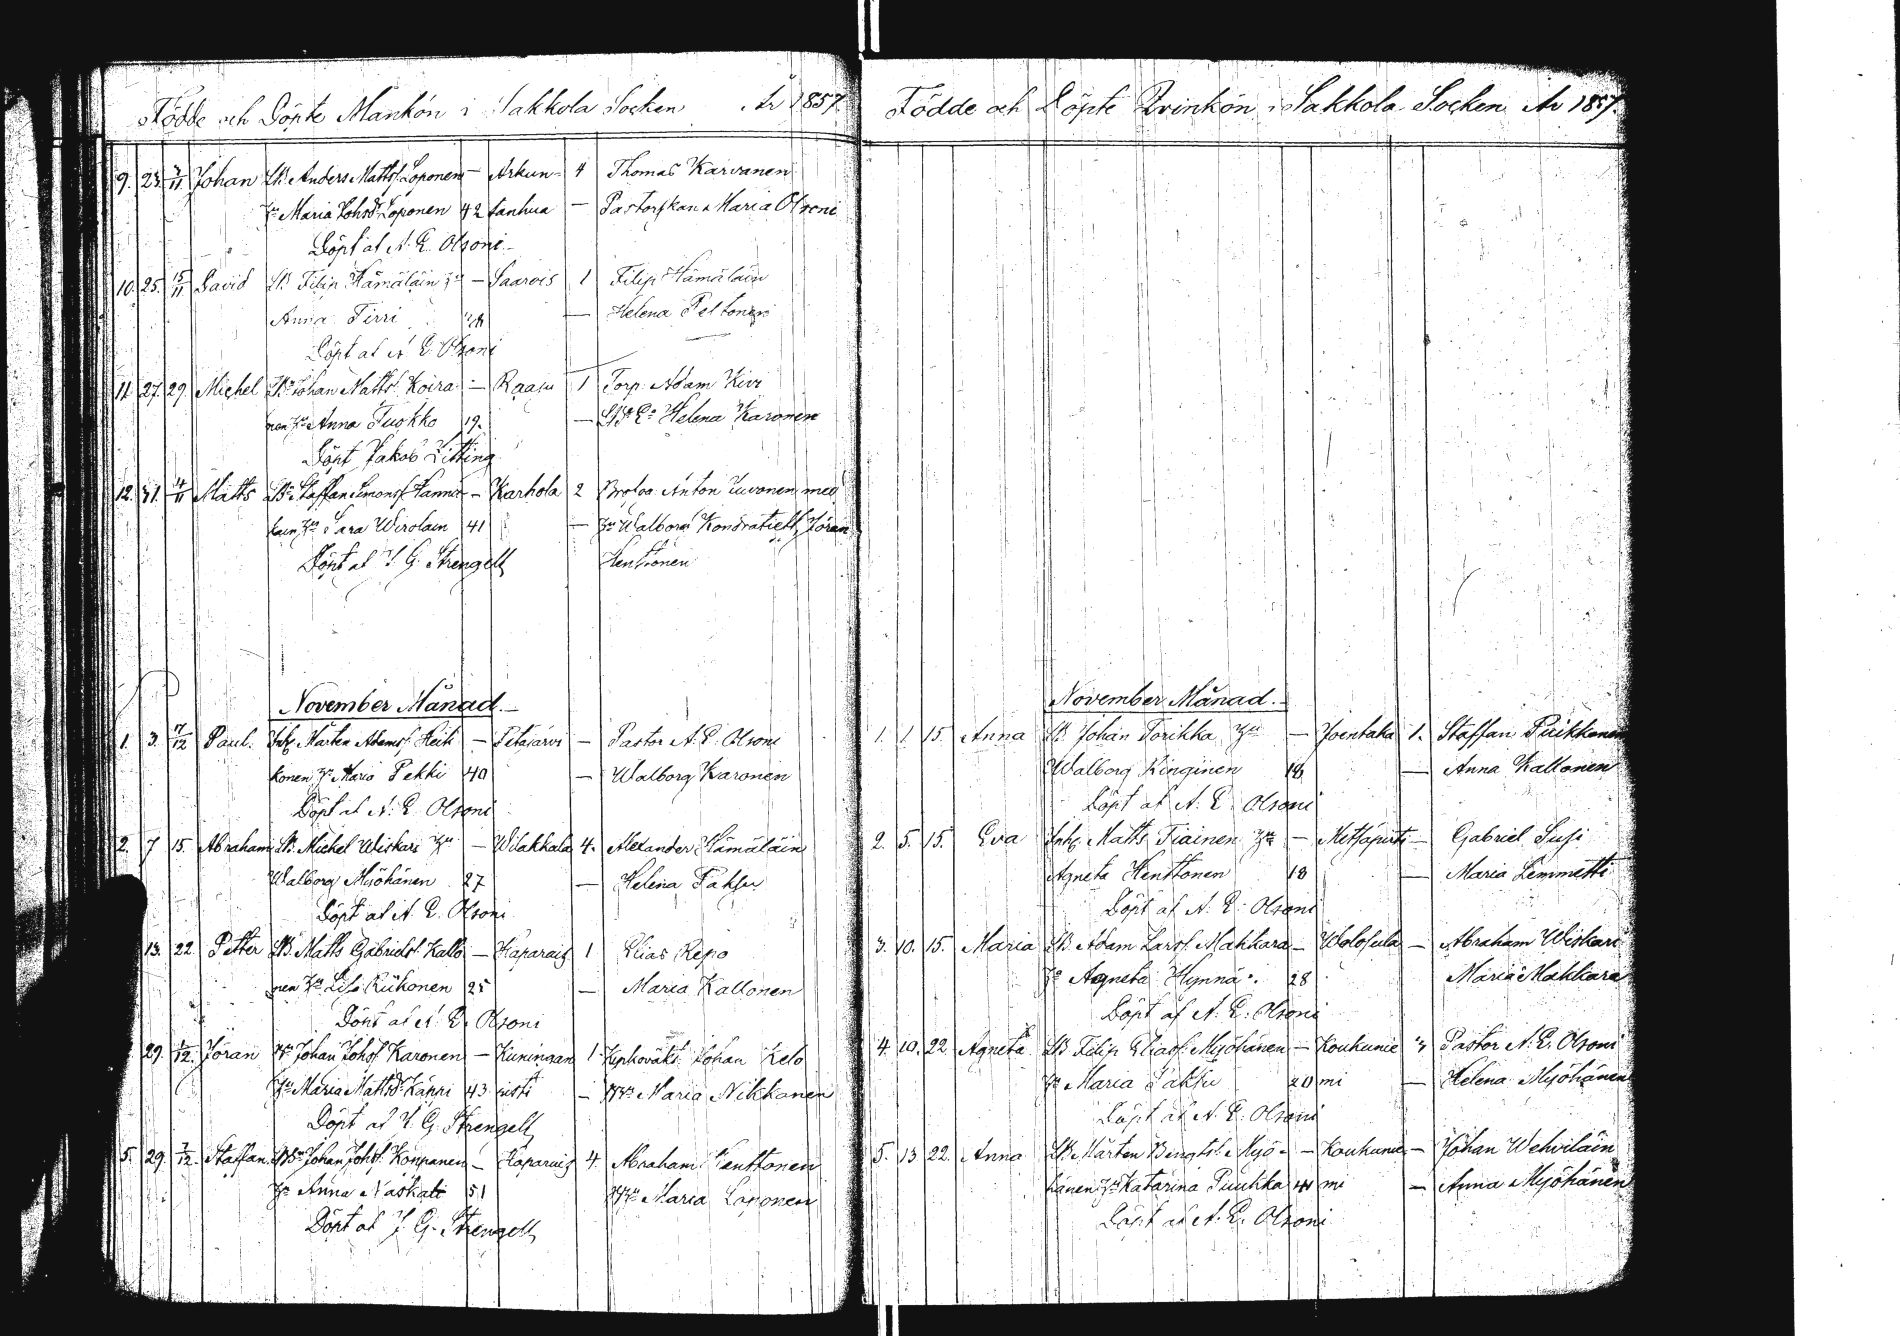 Födde och Döpte Mankön i Sakkola Socken År 1857.
9. 23. 3/11 Johan Anders Matts. Loponen – Arkun- 4 Thomas Karvanen
Maria Johsdr Loponen 42 tanhua – Maria Olsoni
Döpt af A. E. Olsoni
10. 25. 15/11 David Filip Hämäläin – Saarois 1 Filip Hämäläin
Anna Firri – Helena Peltonen
Döpt af A. E. Olsoni
11. 27. 29. Michel Johan Matts. Koira – Raasu 1 Torp. Adam Kivi
nen Anna Tuokko 19. – Helena Karonen
Döpt Jakob Zitting
12. 31. 4/11 Matts Staffan Simons. – Karhola 2 Anton Zuvonen med
Sara Wirolain 41 – Walborg Jöran
Henttonen
Döpt af J. G. Strengell
November Månad.
1. 3. 7/12 Paul. Inh. Mårten Adams. Heik – Petäjärvi – Pastor A. E. Olsoni
konen Maria Pekki 40 – Walborg Karonen
Döpt af A. E. Olsoni
2. 7 15. Abraham Michel Wiskari – Wilakkala 4. Alexander Hämäläin
Walborg Myöhänen 27 – Helena Paksu
Döpt af A. E. Olsoni
13. 22. Petter Matts Gabriels. Kallo – Haparais 1 Elias Repo
nen Lisa Riikonen 25 – Maria Kallonen
Döpt af A. E. Olsoni
29. 1/12. Jöran Johan Johs. Karonen – Kiiningan 1 Johan Kelo
Maria Mattsdr Käppi 43 – Maria Nikkanen
Döpt af J. G. Strengell
5. 29. 7/12. Staffan Johan Johs. Konpanen – Haparais 4 Abraham Henttonen
Anna Naskali 51 Maria Loponen
Döpt af J. G. Strengell
Födde och Döpte Qvinkön i Sakkola Socken År 1857.
November Månad.
1. 1. 15. Anna Johan Torikka – Joentaka 1. Staffan Puikkonen
Walborg Kinginen 18 – Anna Kallonen
Döpt af A. E. Olsoni
2. 5. 15. Eva Inh. Matts Tiainen – Metsäpirti – Gabriel Susi
Agneta Henttonen 18 – Maria Lemmetti
Döpt af A. E. Olsoni
3. 10. 15. Maria Adam Lars. Mahkara – – Abraham Wiskari
Agneta Hynnä 28 Maria Mahkara
Döpt af A. E. Olsoni
4. 10. 22. Agneta Filip Elias. Myöhänen – Koukunie Pastor A. E. Olsoni
Maria Paksu 20 mi – Helena Myöhänen
Döpt af A. E. Olsoni
5. 13 22. Anna Mårten Bengts. Myö – Koukunie – Johan Wehviläin
hänen Katarina Puukka 41 mi – Anna Myöhänen
Döpt af A. E. Olsoni